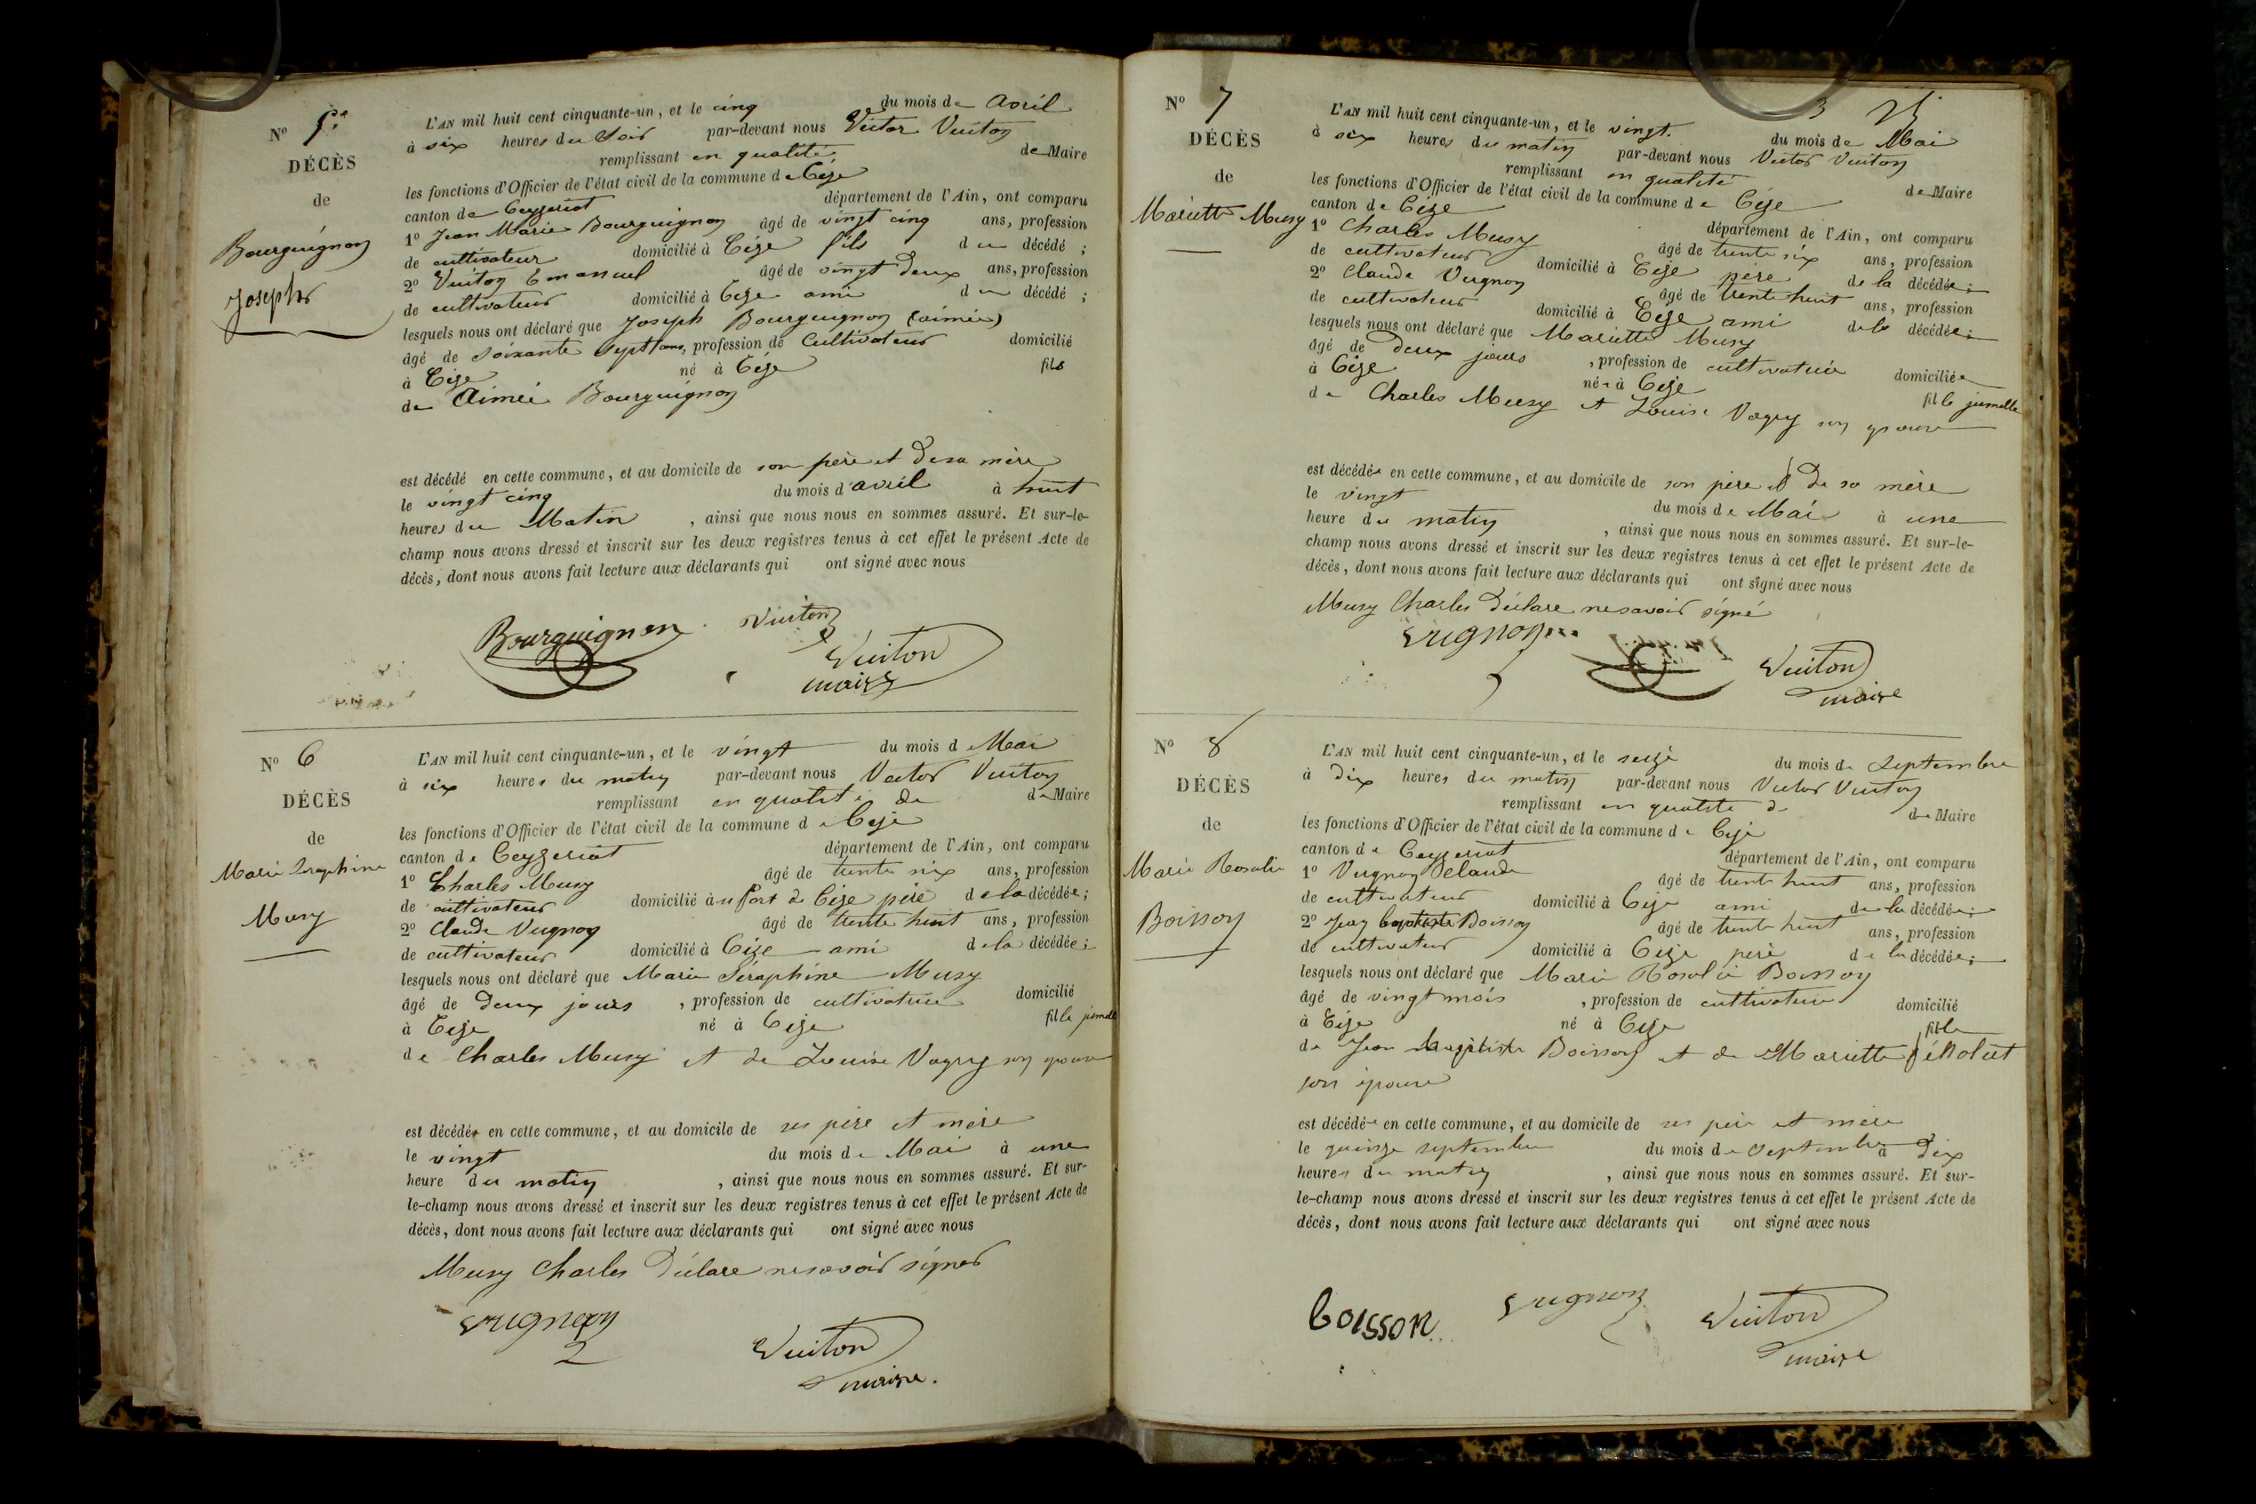 N° 5e
DÉCÈS
de
Bourguignon
Joseph
L'AN mil huit cent cinquante-un, et le cinq du mois de avril
à six heures du Soir par-devant nous Victor Vuiton
remplissant en qualité de Maire
les fonctions d'Officier de l'état civil de la commune de Cize
canton de Ceyzeriat département de l'Ain, ont comparu
1° Jean Marie Bourguignon âgé de vingt cinq ans, profession
de cultivateur domicilié à Cize fils du décédé ;
2° Vuiton Emanuel âgé de vingt deux ans, profession
de cultivateur domicilié à Cize ami du décédé ;
lesquels nous ont déclaré que Joseph Bourguignon (aimée)
âgé de soixante sept ans, profession de Cultivateur domicilié
à Cize né à Cize fils
de Aimée Bourguignon
est décédé en cette commune, et au domicile de son père et de sa mère
le vingt cinq du mois d'avril à huit
heures du Matin , ainsi que nous nous en sommes assuré. Et sur-le-
champ nous avons dressé et inscrit sur les deux registres tenus à cet effet le présent Acte de
décès, dont nous avons fait lecture aux déclarants qui ont signé avec nous
Bourguignon Vuiton
Vuiton
maire
N° 6
DÉCÈS
de
Marie Seraphine
Musy
L'AN mil huit cent cinquante-un, et le vingt du mois d Mai
à six heures du matin par-devant nous Victor Vuiton
remplissant en qualité de de Maire
les fonctions d'Officier de l'état civil de la commune de Cize
canton de Ceyzeriat département de l'Ain, ont comparu
1° Charles Musy âgé de trente six ans, profession
de cultivateur domicilié à u Port de Cize père de la décédée ;
2° Claude Vugnon âgé de trente huit ans, profession
de cultivateur domicilié à Cize ami de la décédée ;
lesquels nous ont déclaré que Marie Séraphine Musy
âgé de deux jours , profession de cultivatrice domicilié
à Cize né à Cize fille jumelle
de Charles Musy et de Louise Vagry son épouse
est décédée en cette commune, et au domicile de ses père et mère
le vingt du mois de Mai à une
heure du matin , ainsi que nous nous en sommes assuré. Et sur-
le-champ nous avons dressé et inscrit sur les deux registres tenus à cet effet le présent Acte de
décès, dont nous avons fait lecture aux déclarants qui ont signé avec nous
Musy Charles Déclare ne savoir signer
Vugnon
Vuiton
maire.
3
N° 7
DÉCÈS
de
Mariette Musy
L'AN mil huit cent cinquante-un, et le vingt du mois de Mai
à six heures du matin par-devant nous Victor Vuiton
remplissant en qualité de Maire
les fonctions d'Officier de l'état civil de la commune de Cize
canton de Cize département de l'Ain, ont comparu
1° Charles Musy âgé de trente six ans, profession
de cultivateur domicilié à Cize père de la décédée ;
2° Claude Vugnon âgé de trente huit ans, profession
de cultivateur domicilié à Cize ami de la décédée ;
lesquels nous ont déclaré que Mariette Musy
âgé de deux jours , profession de cultivatrice domiciliée
à Cize née à Cize fille jumelle
de Charles Musy et Louise Vagry son épouse
est décédée en cette commune, et au domicile de son père et De sa mère
le vingt du mois de Mai à une
heure du matin , ainsi que nous nous en sommes assuré. Et sur-le-
champ nous avons dressé et inscrit sur les deux registres tenus à cet effet le présent Acte de
décès, dont nous avons fait lecture aux déclarants qui ont signé avec nous
Musy Charles Déclare ne savoir signé
Vugnon
Vuiton
maire
N° 8
DÉCÈS
de
Marie Rosalie
Boisson
L'AN mil huit cent cinquante-un, et le seize du mois de Septembre
à dix heures du matin par-devant nous Victor Vuiton
remplissant en qualité d de Maire
les fonctions d'Officier de l'état civil de la commune de Cize
canton de Ceyzeriat département de l'Ain, ont comparu
1° Vugnon Claude âgé de trente huit ans, profession
de cultivateur domicilié à Cize ami de la décédée ;
2° Jean baptiste Boisson âgé de trente huit ans, profession
de cultivateur domicilié à Cize père de la décédée ;
lesquels nous ont déclaré que Marie Rosalie Boisson
âgé de vingt mois , profession de cultivatrice domicilié
à Cize né à Cize fille
de Jean Baptiste Boisson et de Mariette
son épouse
est décédée en cette commune, et au domicile de ses père et mère
le quinze septembre du mois de Septembre à Dix
heures du matin , ainsi que nous nous en sommes assuré. Et sur-
le-champ nous avons dressé et inscrit sur les deux registres tenus à cet effet le présent Acte de
décès, dont nous avons fait lecture aux déclarants qui ont signé avec nous
boisson Vugnon Vuiton
maire